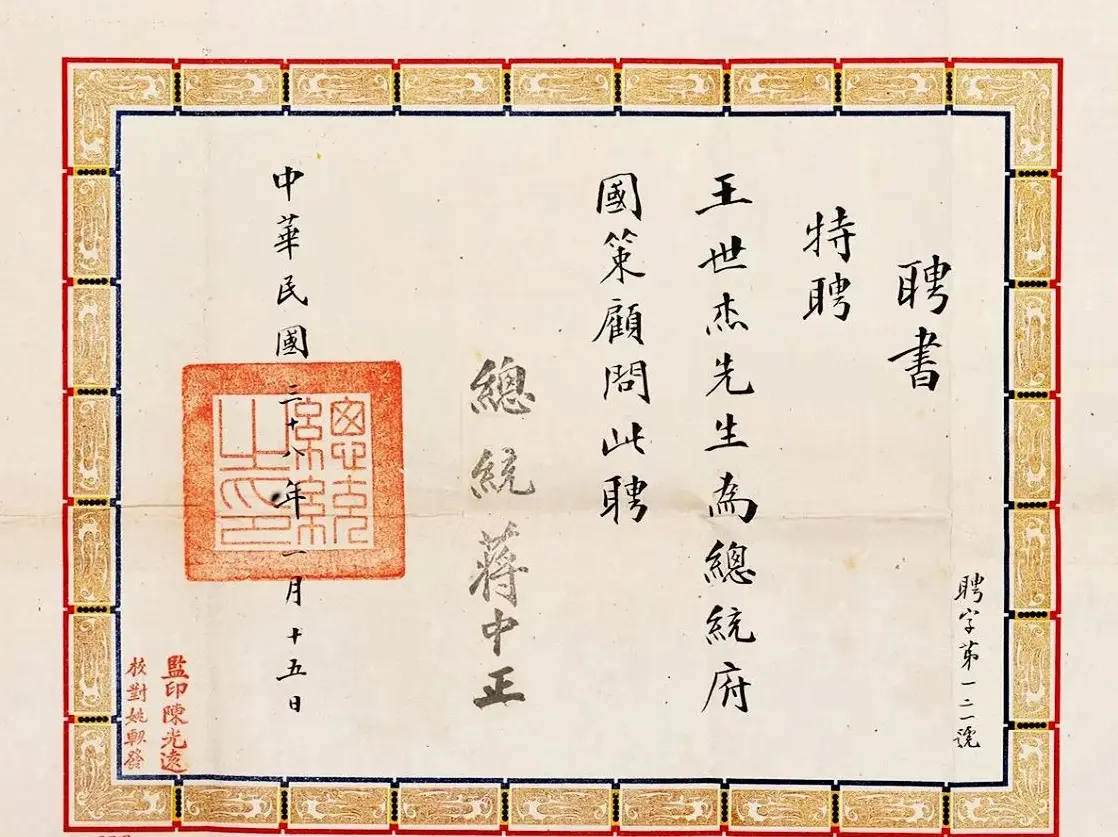 聘書
聘字第一二一號
特聘
王世杰先生為總統府
國策顧問此聘
總統 蔣中正
中華民國三十八年一月十五日
總統之印
監印陳光遠
校對姚軔發